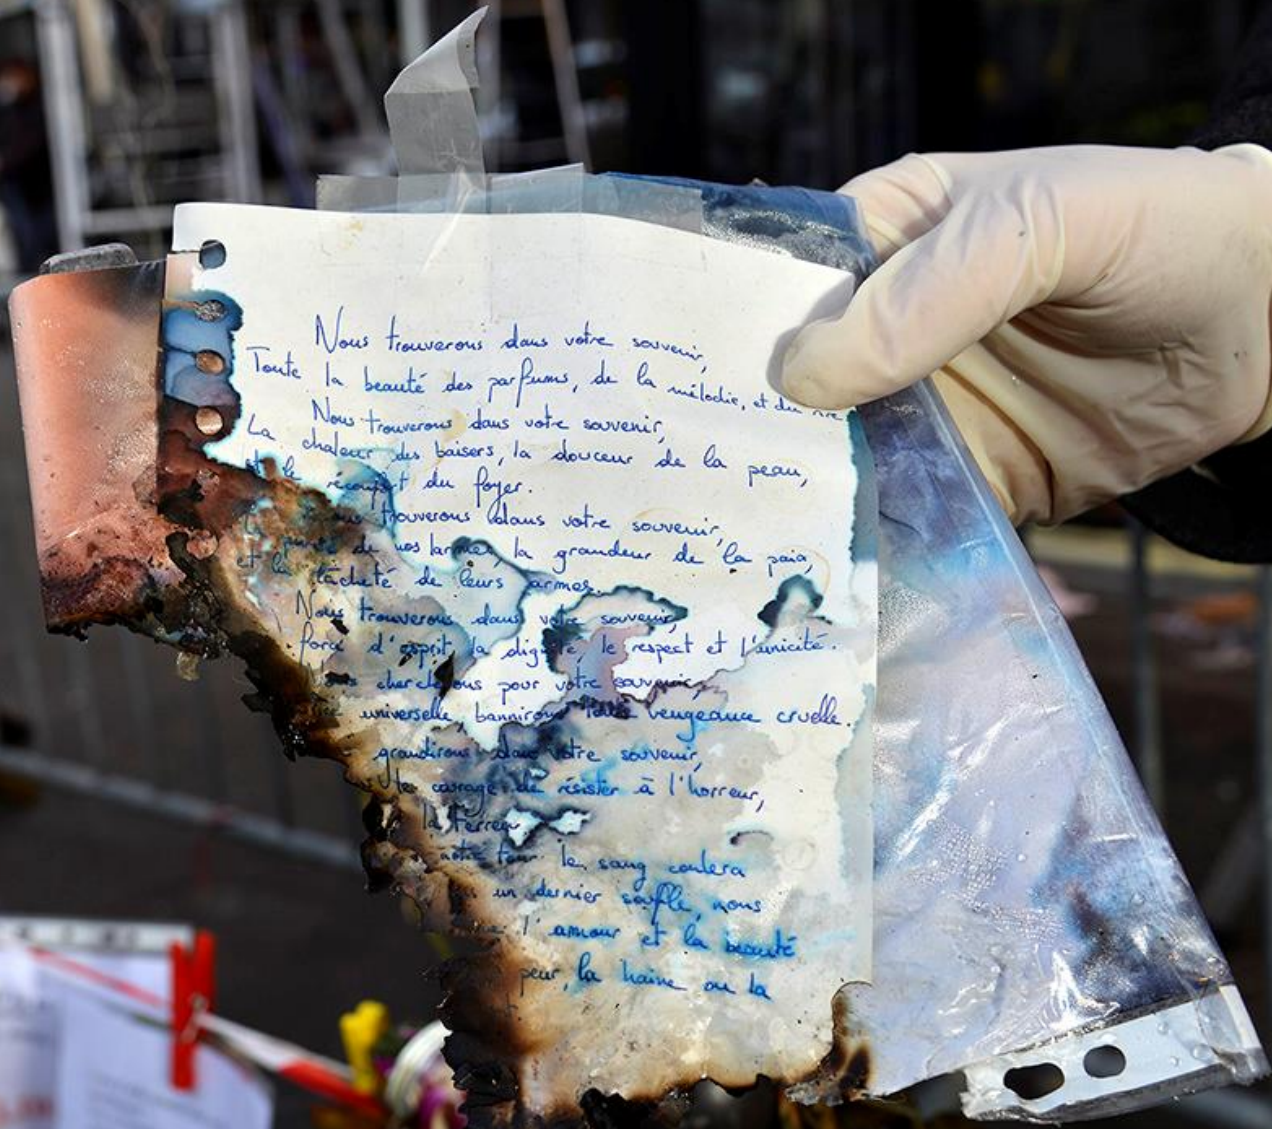 Nous trouverons dans votre souvenir,
Toute la beauté des parfums, de la mélodie, et du rire
Nous trouverons dans votre souvenir,
La chaleur des baisers, la douceur de la peau,
et le réconfort du foyer.
trouverons dans votre souvenir,
de nos larmes, la grandeur de la paix,
et la lâcheté de leurs armes.
Nous trouverons dans votre souvenir,
force d'esprit, la dignité, le respect et l'unicité.
chercherons pour votre souvenir,
universelle, bannirons toute vengeance cruelle.
grandirons dans votre souvenir,
le courage de résister à l'horreur,
la terreur
notre tour le sang coulera
un dernier souffle, nous
l'amour et la beauté
peur, la haine ou la